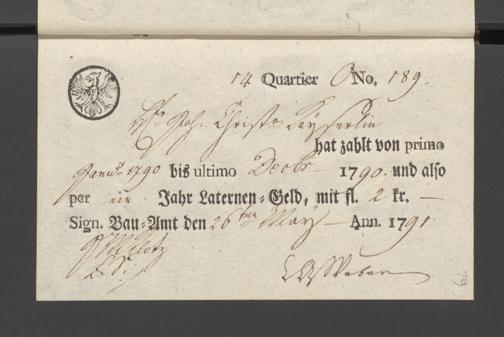 14 Quartier No. 189.
Joh. Christ.
hat zahlt von primo
1790 bis ultimo Decbr 1790. und also
per ein Jahr Laternen-Geld, mit fl. 2 kr. —
Sign. Bau-Amt den 26ten May — Ann. 1791
79